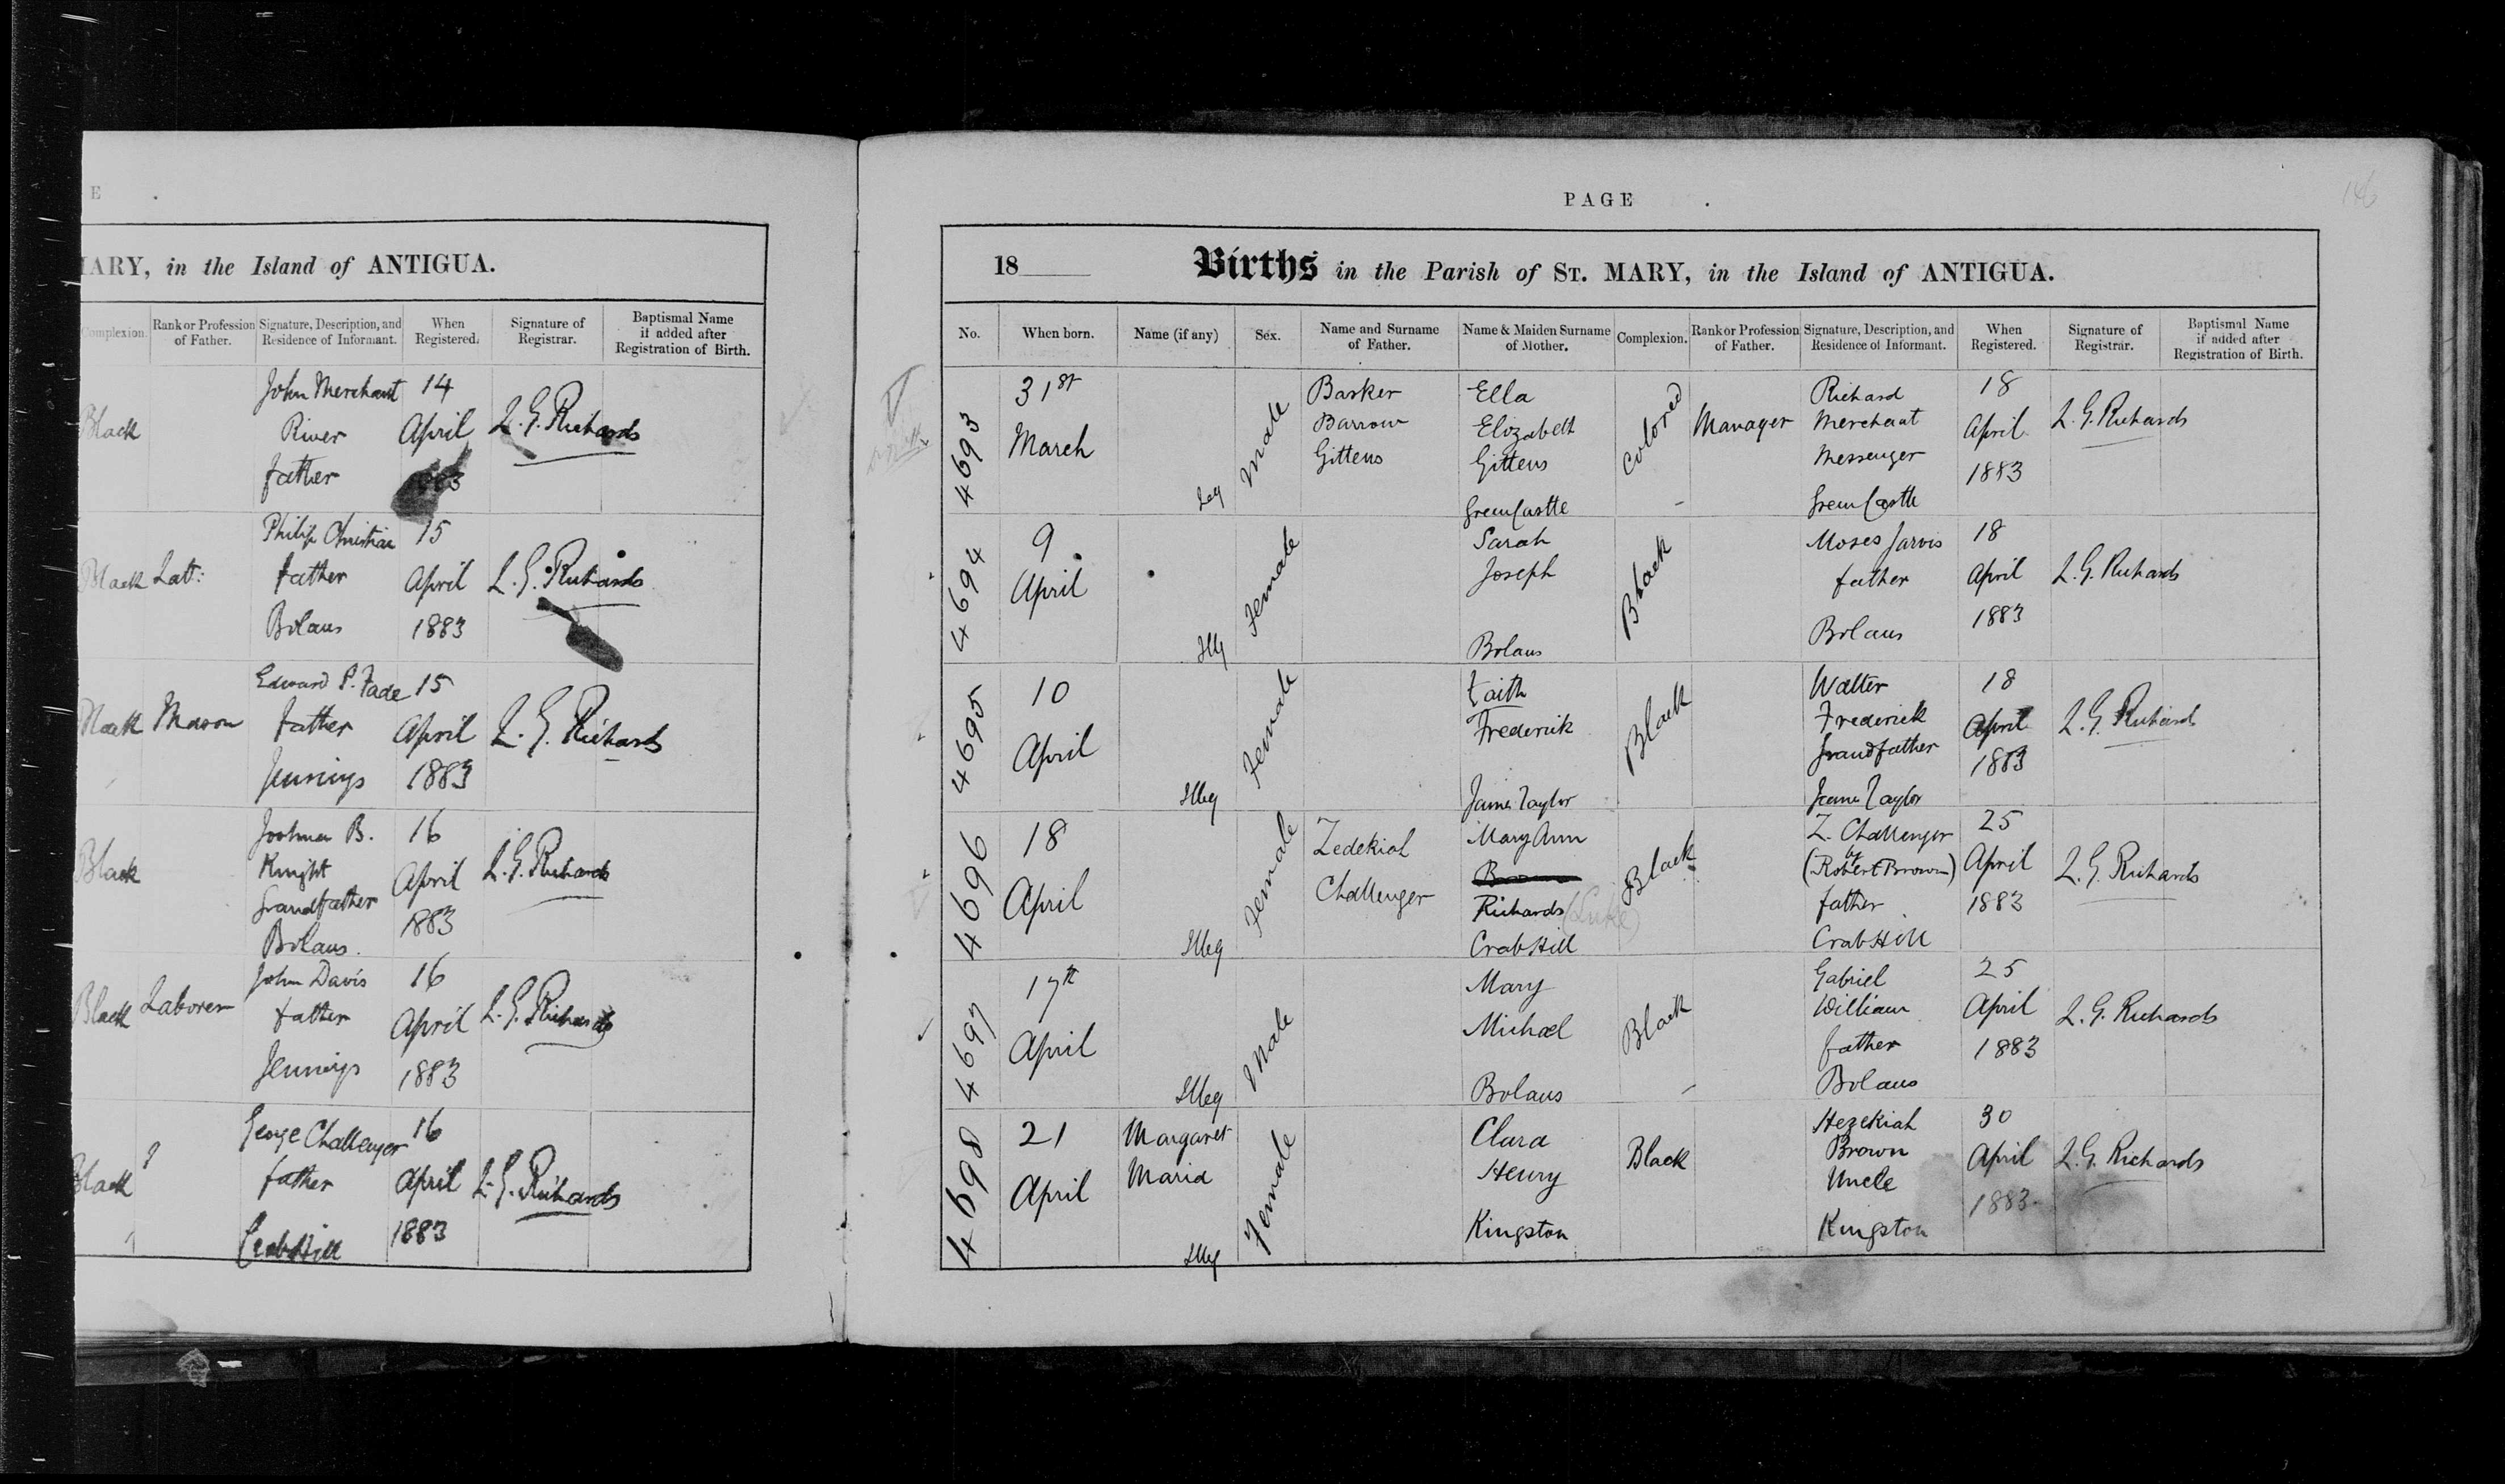 E
MARY, in the Island of ANTIGUA.
Complexion. Rank or Profession of Father. Signature, Description, and Residence of Informant. When Registered. Signature of Registrar. Baptismal Name if added after Registration of Birth.
John Merchant 14
Black River April L. G. Richards
father 1883
Philip Christian 15
Black Lab: father April L. G. Richards
Bolans 1883
Edward P. Fade 15
Black Mason father April L. G. Richards
Jennings 1883
Joshua B. 16
Black Knight April L. G. Richards
Grandfather 1883
Bolans.
John Davis 16
Black Laborer father April L. G. Richards
Jennings 1883
George Challenger 16
Black father April L. G. Richards
Crab Hill 1883
PAGE
146
18 Births in the Parish of ST. MARY, in the Island of ANTIGUA.
No. When born. Name (if any) Sex. Name and Surname of Father. Name & Maiden Surname of Mother. Complexion. Rank or Profession of Father. Signature, Description, and Residence of Informant. When Registered. Signature of Registrar. Baptismal Name if added after Registration of Birth.
31st Barker Ella Richard 18
4693 March Male Barrow Elizabeth Colored Manager Merchant April L. G. Richards
Gittens Gittens Messenger 1883
Leg Green Castle Green Castle
9 Sarah Moses Jarvis 18
4694 April Female Joseph Black father April L. G. Richards
Illeg Bolans Bolans 1883
10 Faith Walter 18
4695 April Female Frederick Black Frederick April L. G. Richards
Grandfather 1883
Illeg James Taylor James Taylor
18 Zedekiah Mary Ann Z. Challenger 25
4696 April Female Challenger Brown Black by (Robert Brown) April L. G. Richards
Richards (Luke) father 1883
Illeg Crab Hill Crab Hill
17th Mary Gabriel 25
4697 April Male Michael Black William April L. G. Richards
father 1883
Illeg Bolans Bolans
21 Margaret Clara Hezekiah 30
4698 April Maria Female Henry Black Brown April L. G. Richards
Uncle 1883
Illeg Kingston Kingston